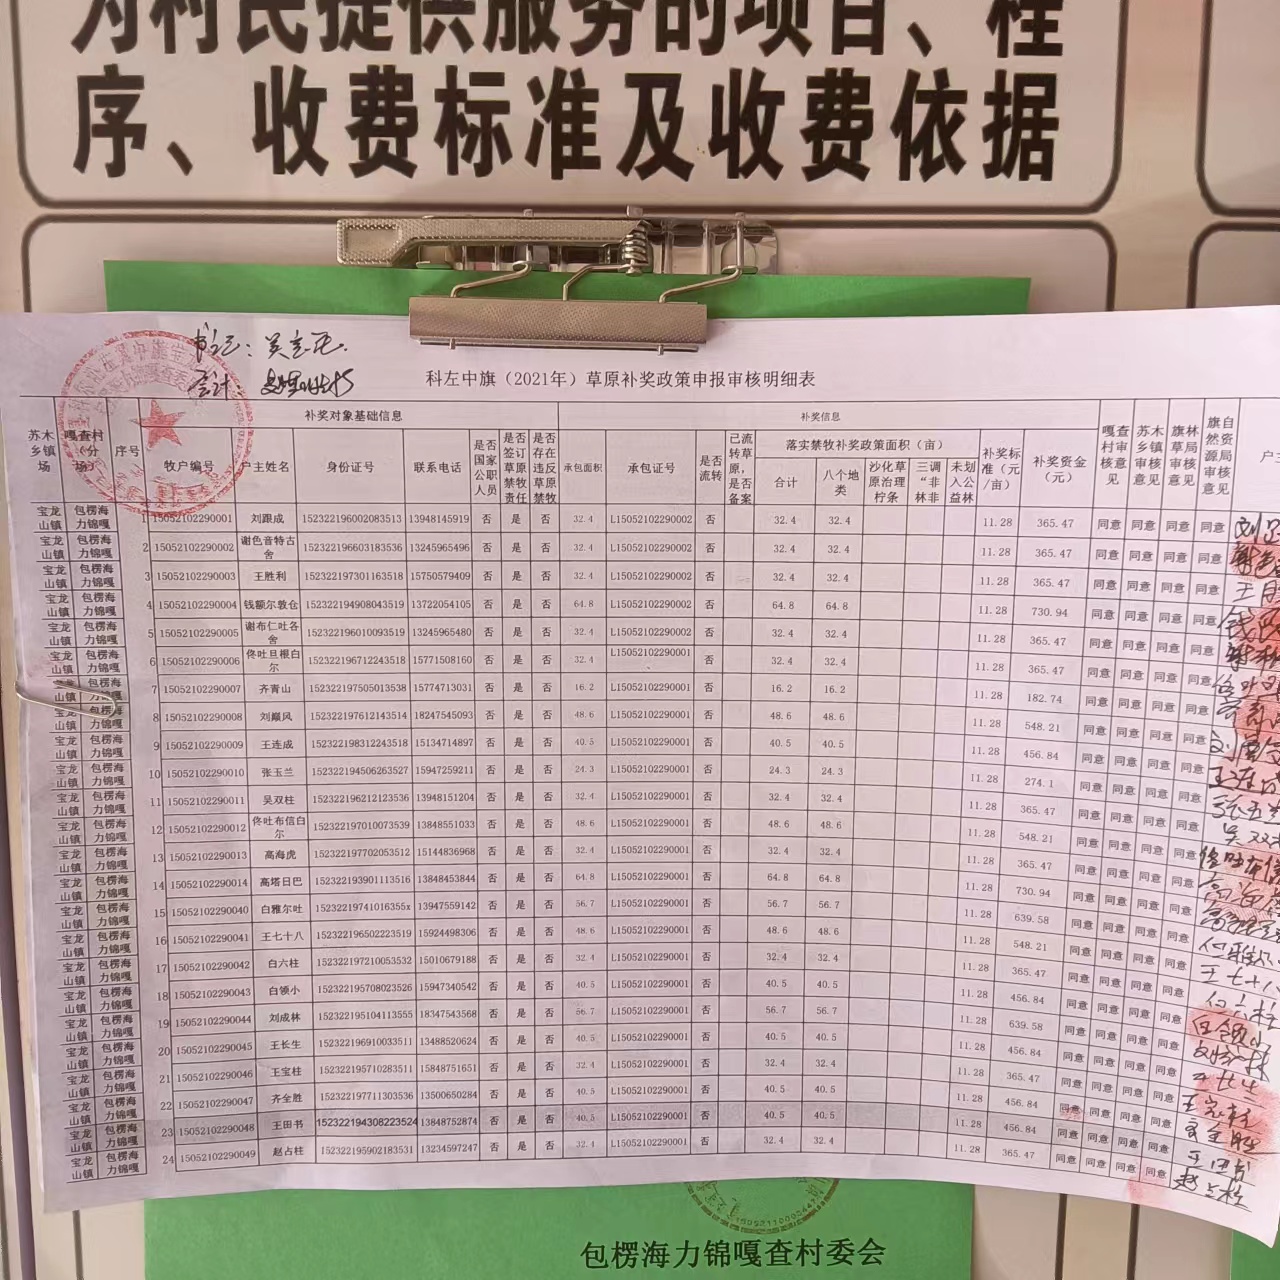 为村民提供服务的项目、程
序、收费标准及收费依据
书记：吴
会计：
科左中旗（2021年）草原补奖政策申报审核明细表
苏木乡镇场 嘎查村（分场） 序号 补奖对象基础信息 补奖信息 嘎查村审核意见 苏木乡镇审核意见 旗林草局审核意见 旗自然资源局审核意见 户主
牧户编号 户主姓名 身份证号 联系电话 是否国家公职人员 是否签订草原禁牧责任 是否存在违反草原禁牧 承包面积 承包证号 是否流转 已流转草原，是否备案 落实禁牧补奖政策面积（亩） 补奖标准（元/亩） 补奖资金（元）
合计 八个地类 沙化草原治理柠条 三调“非林非 未划入公益林
宝龙山镇 包楞海力锦嘎 1 15052102290001 刘跟成 152322196002083513 13948145919 否 是 否 32.4 L15052102290002 否 32.4 32.4 11.28 365.47 同意 同意 同意 同意
宝龙山镇 包楞海力锦嘎 2 15052102290002 谢色音特古舍 152322196603183536 13245965496 否 是 否 32.4 L15052102290002 否 32.4 32.4 11.28 365.47 同意 同意 同意 同意
宝龙山镇 包楞海力锦嘎 3 15052102290003 王胜利 152322197301163518 15750579409 否 是 否 32.4 L15052102290002 否 32.4 32.4 11.28 365.47 同意 同意 同意 同意
宝龙山镇 包楞海力锦嘎 4 15052102290004 钱额尔敦仓 152322194908043519 13722054105 否 是 否 64.8 L15052102290002 否 64.8 64.8 11.28 730.94 同意 同意 同意 同意
宝龙山镇 包楞海力锦嘎 5 15052102290005 谢布仁吐各舍 152322196010093519 13245965480 否 是 否 32.4 L15052102290002 否 32.4 32.4 11.28 365.47 同意 同意 同意 同意
宝龙山镇 包楞海力锦嘎 6 15052102290006 佟吐旦根白尔 152322196712243518 15771508160 否 是 否 32.4 L15052102290001 否 32.4 32.4 11.28 365.47 同意 同意 同意 同意
宝龙山镇 包楞海力锦嘎 7 15052102290007 齐青山 152322197505013538 15774713031 否 是 否 16.2 L15052102290001 否 16.2 16.2 11.28 182.74 同意 同意 同意 同意
宝龙山镇 包楞海力锦嘎 8 15052102290008 刘巅风 152322197612143514 18247545093 否 是 否 48.6 L15052102290001 否 48.6 48.6 11.28 548.21 同意 同意 同意 同意
宝龙山镇 包楞海力锦嘎 9 15052102290009 王连成 152322198312243518 15134714897 否 是 否 40.5 L15052102290001 否 40.5 40.5 11.28 456.84 同意 同意 同意 同意
宝龙山镇 包楞海力锦嘎 10 15052102290010 张玉兰 152322194506263527 15947259211 否 是 否 24.3 L15052102290001 否 24.3 24.3 11.28 274.1 同意 同意 同意 同意
宝龙山镇 包楞海力锦嘎 11 15052102290011 吴双柱 152322196212123536 13948151204 否 是 否 32.4 L15052102290001 否 32.4 32.4 11.28 365.47 同意 同意 同意 同意
宝龙山镇 包楞海力锦嘎 12 15052102290012 佟吐布信白尔 152322197010073539 13848551033 否 是 否 48.6 L15052102290001 否 48.6 48.6 11.28 548.21 同意 同意 同意 同意
宝龙山镇 包楞海力锦嘎 13 15052102290013 高海虎 152322197702053512 15144836968 否 是 否 32.4 L15052102290001 否 32.4 32.4 11.28 365.47 同意 同意 同意 同意
宝龙山镇 包楞海力锦嘎 14 15052102290014 高塔日巴 152322193901113516 13848453844 否 是 否 64.8 L15052102290001 否 64.8 64.8 11.28 730.94 同意 同意 同意 同意
宝龙山镇 包楞海力锦嘎 15 15052102290040 白雅尔吐 15232219741016355x 13947559142 否 是 否 56.7 L15052102290001 否 56.7 56.7 11.28 639.58 同意 同意 同意 同意
宝龙山镇 包楞海力锦嘎 16 15052102290041 王七十八 152322196502223519 15924498306 否 是 否 48.6 L15052102290001 否 48.6 48.6 11.28 548.21 同意 同意 同意 同意
宝龙山镇 包楞海力锦嘎 17 15052102290042 白六柱 152322197210053532 15010679188 否 是 否 32.4 L15052102290001 否 32.4 32.4 11.28 365.47 同意 同意 同意 同意
宝龙山镇 包楞海力锦嘎 18 15052102290043 白领小 152322195708023526 15947340542 否 是 否 40.5 L15052102290001 否 40.5 40.5 11.28 456.84 同意 同意 同意 同意
宝龙山镇 包楞海力锦嘎 19 15052102290044 刘成林 152322195104113555 18347543568 否 是 否 56.7 L15052102290001 否 56.7 56.7 11.28 639.58 同意 同意 同意 同意
宝龙山镇 包楞海力锦嘎 20 15052102290045 王长生 152322196910033511 13488520624 否 是 否 40.5 L15052102290001 否 40.5 40.5 11.28 456.84 同意 同意 同意 同意
宝龙山镇 包楞海力锦嘎 21 15052102290046 王宝柱 152322195710283511 15848751651 否 是 否 32.4 L15052102290001 否 32.4 32.4 11.28 365.47 同意 同意 同意 同意
宝龙山镇 包楞海力锦嘎 22 15052102290047 齐全胜 152322197711303536 13500650284 否 是 否 40.5 L15052102290001 否 40.5 40.5 11.28 456.84 同意 同意 同意 同意
宝龙山镇 包楞海力锦嘎 23 15052102290048 王田书 152322194308223524 13848752874 否 是 否 40.5 L15052102290001 否 40.5 40.5 11.28 456.84 同意 同意 同意 同意
宝龙山镇 包楞海力锦嘎 24 15052102290049 赵占柱 152322195902183531 13234597247 否 是 否 32.4 L15052102290001 否 32.4 32.4 11.28 365.47 同意 同意 同意 同意
包楞海力锦嘎查村委会